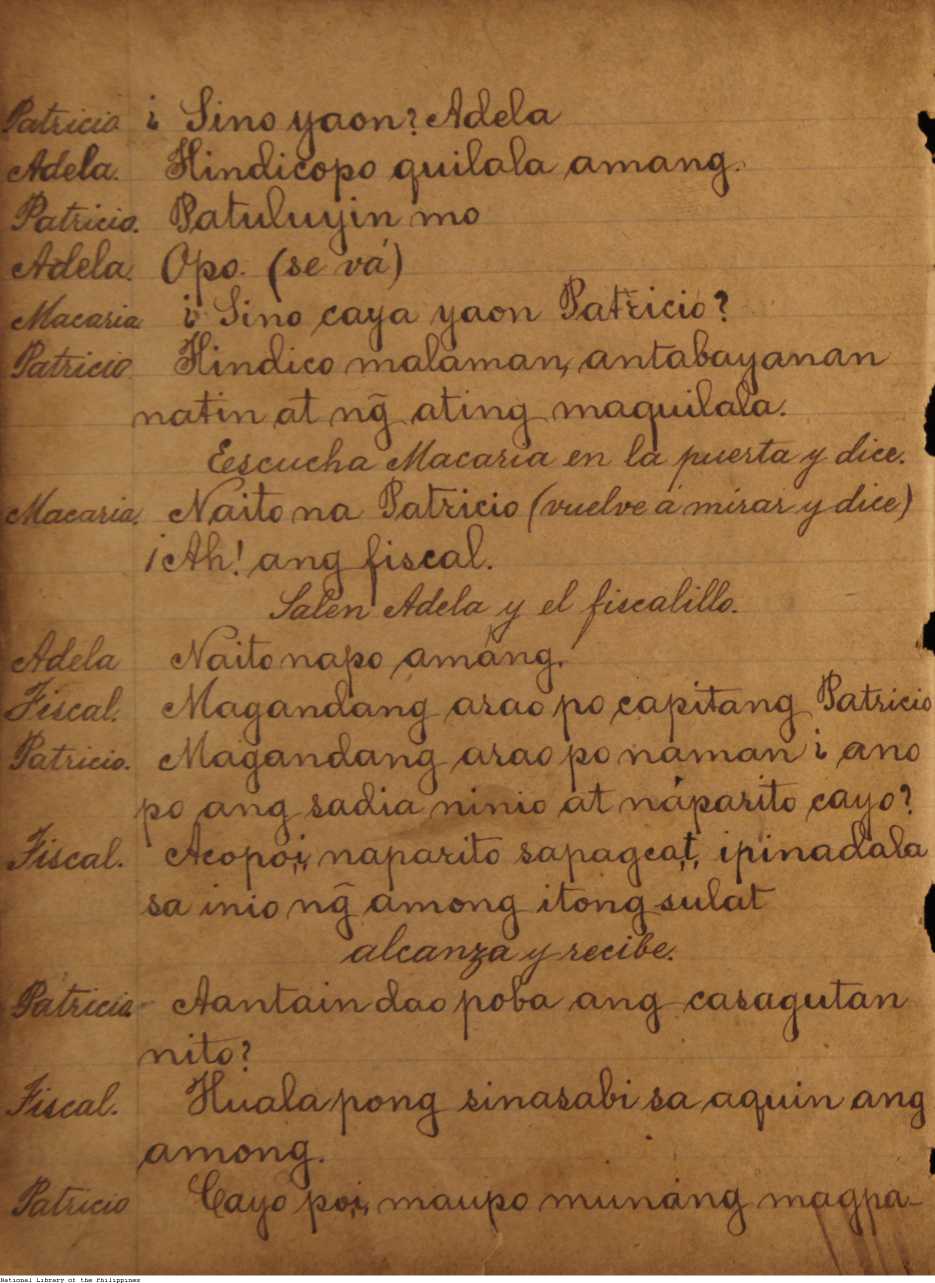 Patricio ¿ Sino yaon? Adela
Adela. Hindicopo quilala amang.
Patricio. Patuluyin mo
Adela. Opo. (se vá)
Macaria ¿ Sino caya yaon Patricio?
Patricio. Hindico malaman, antabayanan
natin at ng̃ ating maquilala.
Escucha Macaria en la puerta y dice.
Macaria. Naito na Patricio (vuelve á mirar y dice)
¡Ah! ang fiscal.
Salen Adela y el fiscalillo.
Adela Naito napo amáng.
Fiscal. Magandang arao po capitang Patricio
Patricio. Magandang arao po naman ¿ ano
po ang sadia ninio at náparito cayo?
Fiscal. Acopoi, naparito sapagcat, ipinadala
sa inio ng̃ among itong sulat
alcanza y recibe.
Patricio Aantain dao poba ang casagutan
nito?
Fiscal. Huala pong sinasabi sa aquin ang
among.
Patricio Cayo poi, maupo munáng magpa-
National Library of the Philippines